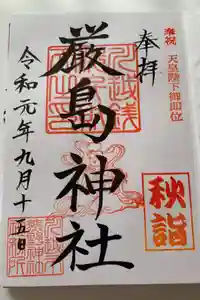 奉祝 天皇陛下御即位
奉拝
厳島神社
令和元年九月十五日
秋詣